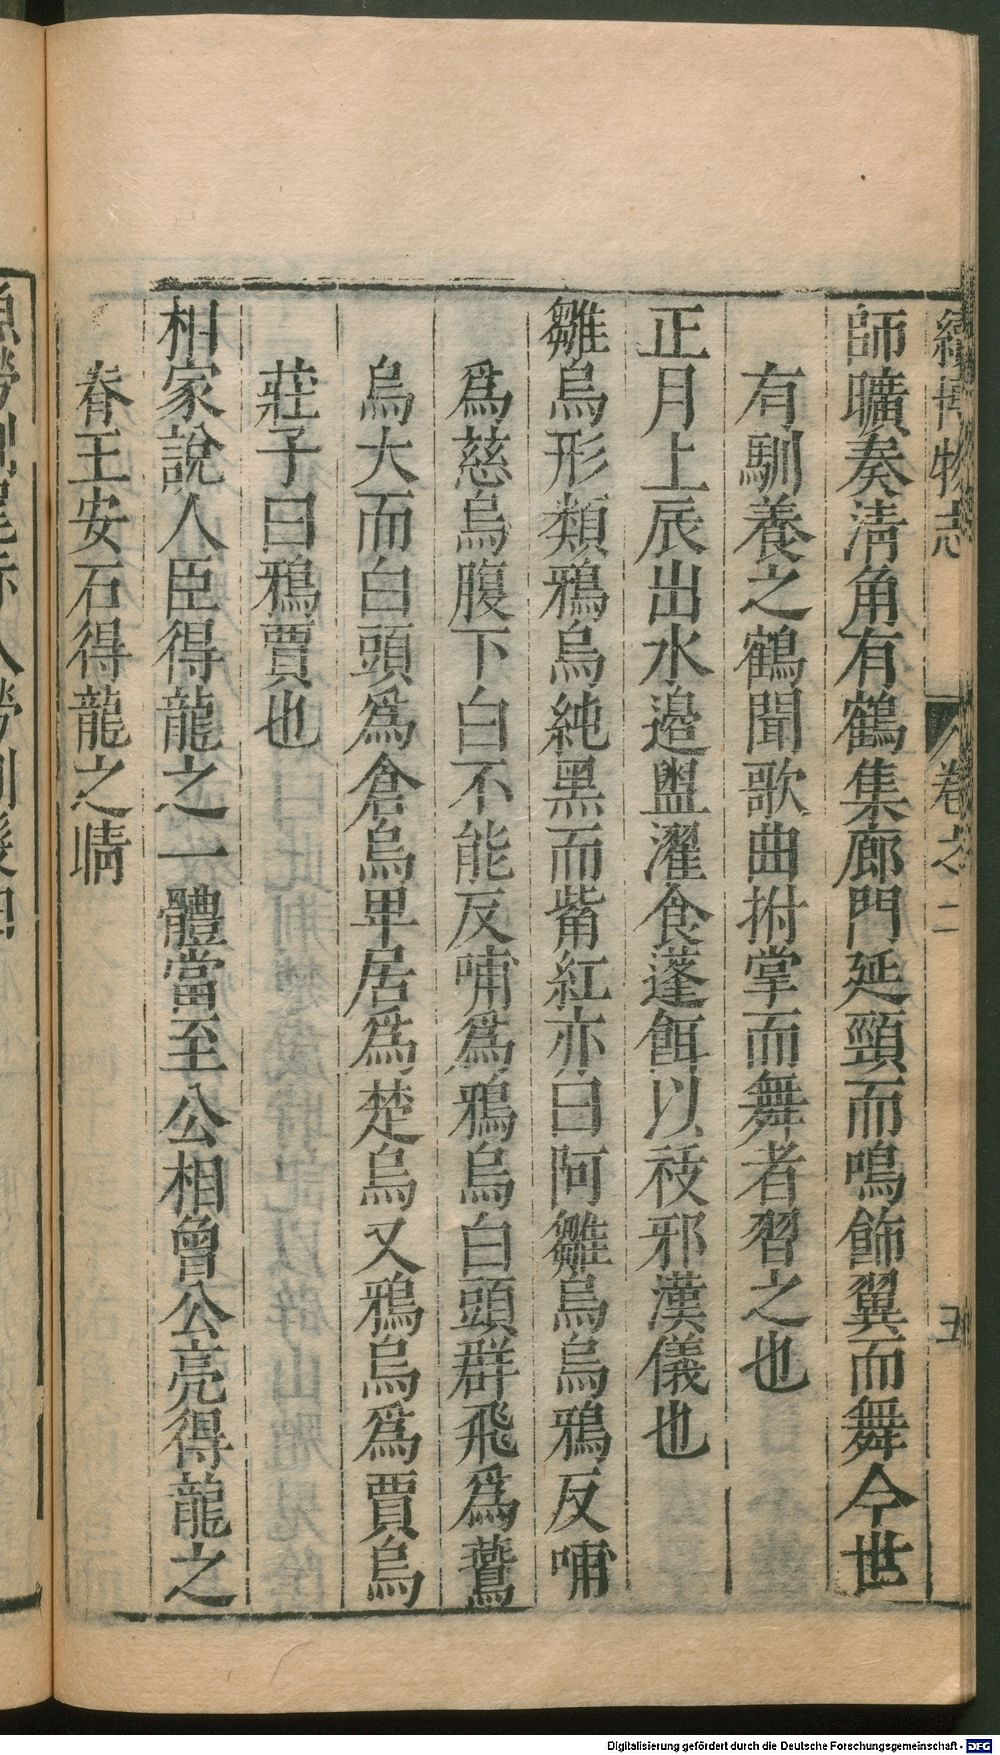 續博物志 卷之二 五
師曠奏淸角有鶴集廊門延頸而鳴飾翼而舞今世
有馴養之鶴聞歌曲拊掌而舞者習之也
正月上辰出水邉盥濯食蓬餌以祓邪漢儀也
雛烏形類鴉烏純黑而觜紅亦曰阿雛烏烏鴉反哺
爲慈烏腹下白不能反哺爲鴉烏白頭群飛爲鷰
烏大而白頭爲倉烏𤰞居爲楚烏又鴉烏爲賈烏
莊子曰鴉賈也
相家說人臣得龍之一體當至公相曾公亮得龍之
脊王安石得龍之睛
Digitalisierung gefördert durch die Deutsche Forschungsgemeinschaft - DFG